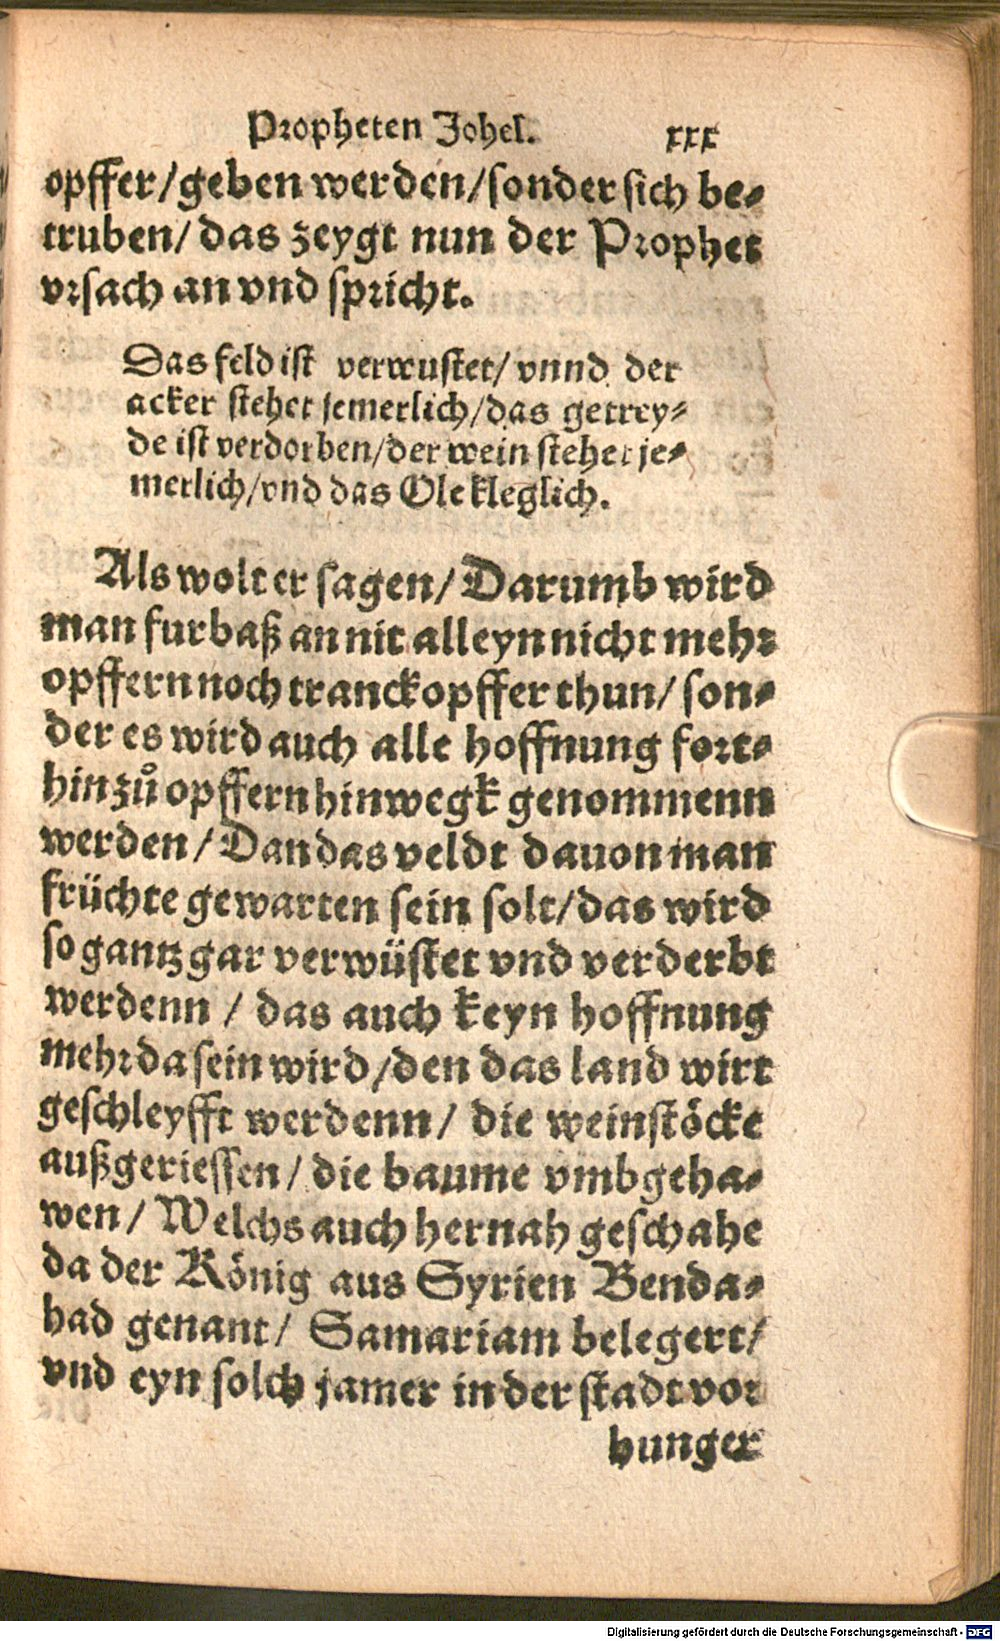 Propheten Johel. xxx
opffer/geben werden/sonder sich be-
truben/ das zeygt nun der Prophet
vrsach an vnd spricht.
Das feld ist verwustet/ vnnd der
acker stehet jemerlich/das getrey-
de ist verdorben/der wein stehet je-
merlich/vnd das Ole kleglich.
Als wolt er sagen/ Darumb wird
man furbaß an nit alleyn nicht mehr
opffern noch tranckopffer thun/ son-
der es wird auch alle hoffnung fort-
hin zů opffern hinwegk genommenn
werden/ Dan das veldt dauon man
früchte gewarten sein solt/das wird
so gantz gar verwüstet vnd verderbt
werdenn / das auch keyn hoffnung
mehr da sein wird/den das land wirt
geschleyfft werdenn/ die weinstöcke
außgeriessen/ die baume vmbgeha-
wen/ Welchs auch hernah geschahe
da der König aus Syrien Benda-
had genant/ Samariam belegert/
vnd eyn solch jamer in der stadt vor
hunger
Digitalisierung gefördert durch die Deutsche Forschungsgemeinschaft - DFG